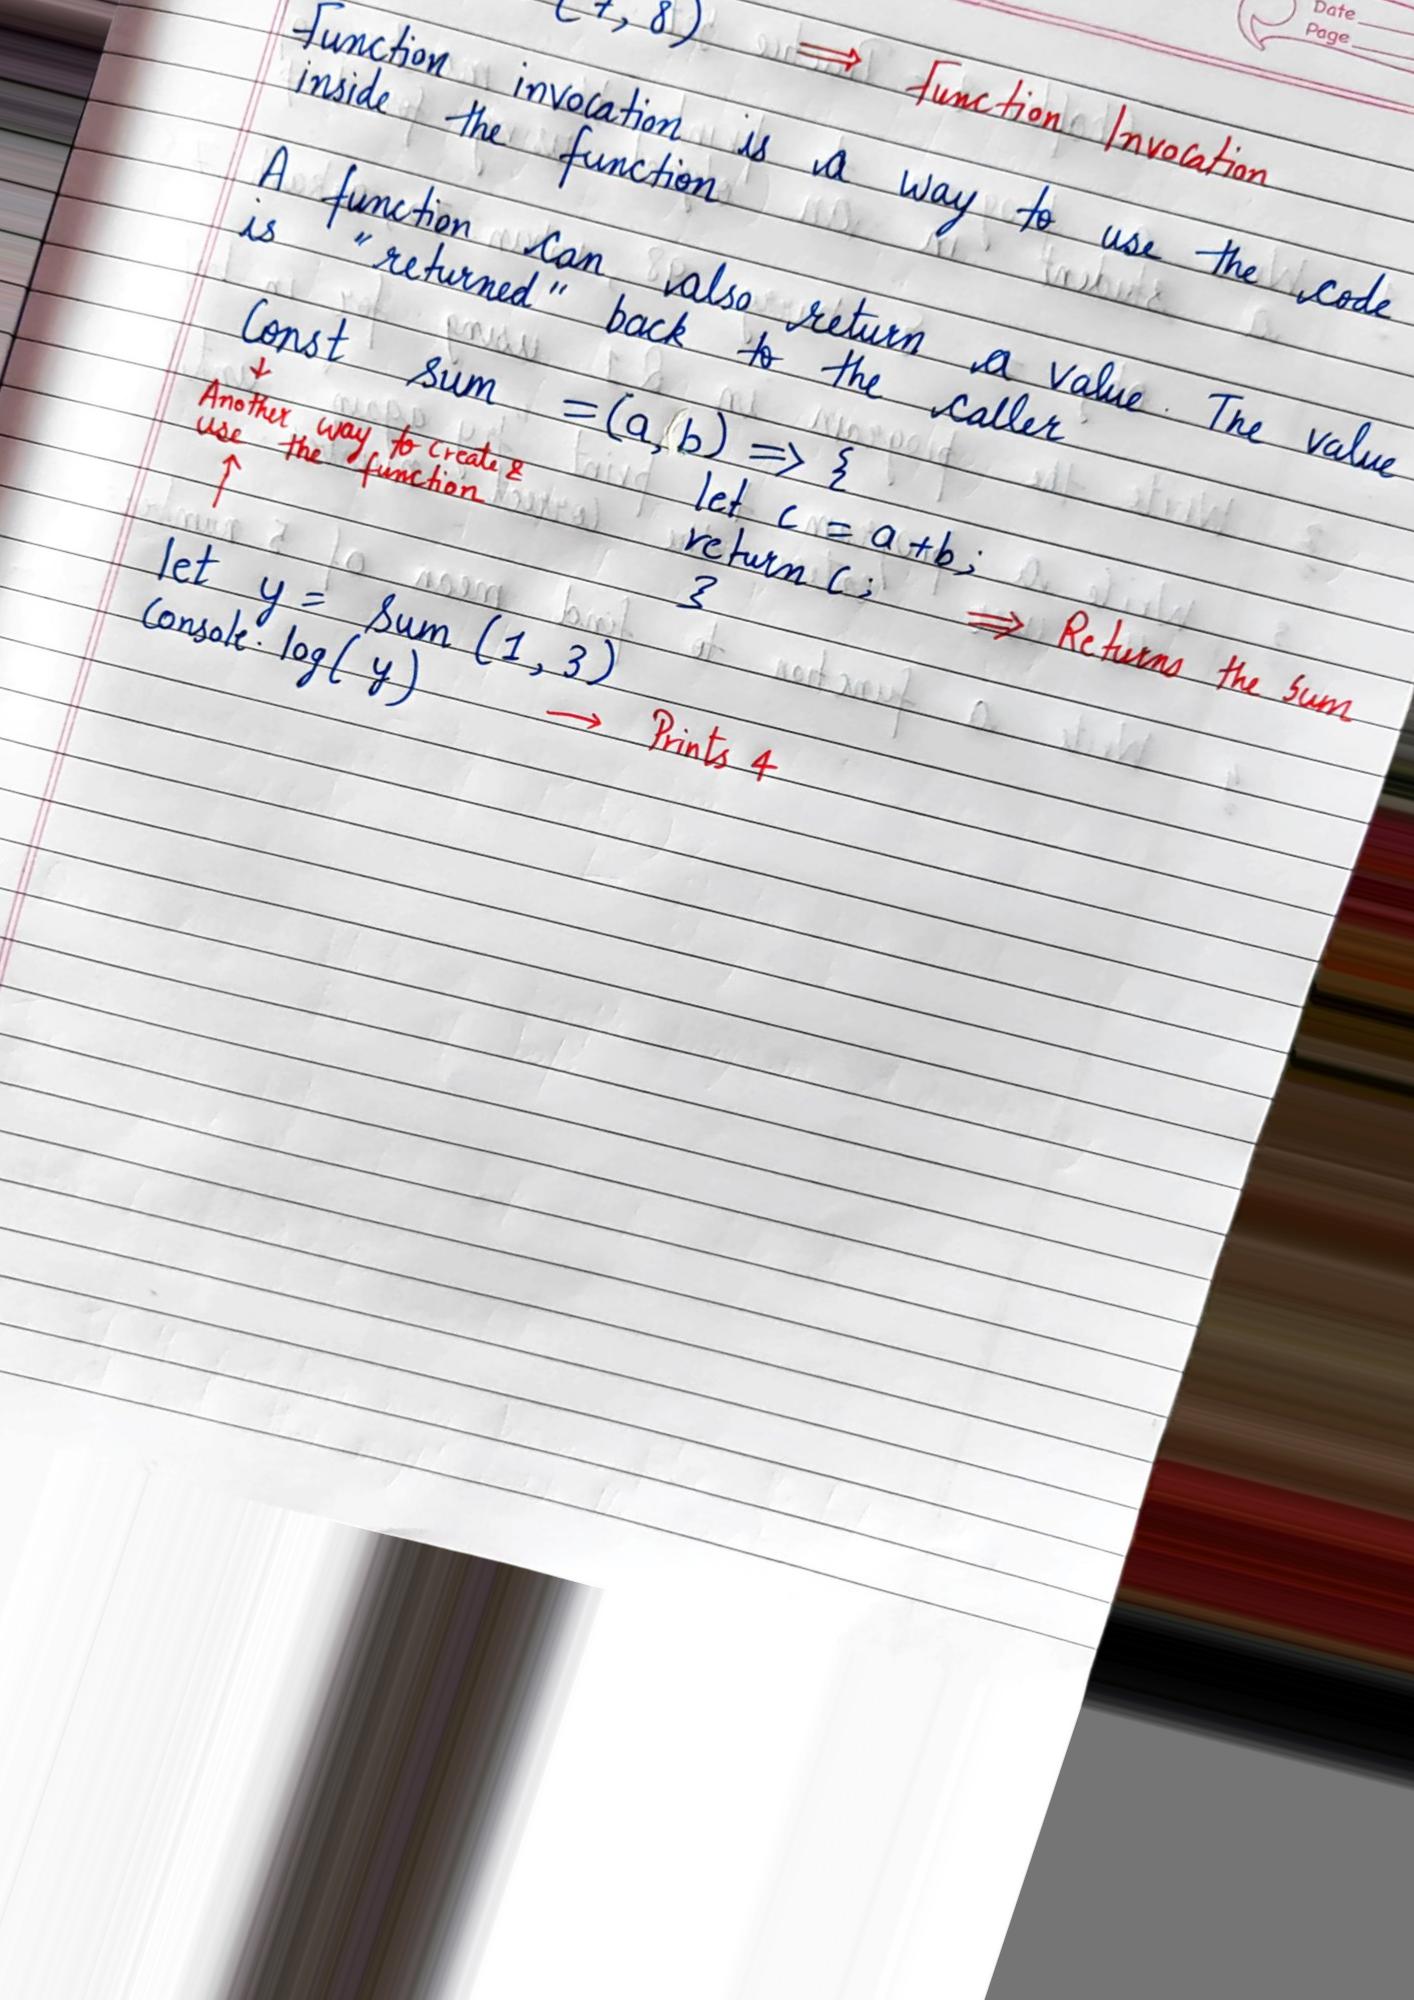 Date
Page
(7, 8) ⇒ Function Invocation
Function invocation is a way to use the code
inside the function
A function can also return a value. The value
is "returned" back to the caller
Const sum = (a, b) => {
↓
Another way to create &
use the function
↑
let c = a + b;
return c; ⇒ Returns the sum
}
let y = sum (1, 3)
Console.log( y) → Prints 4